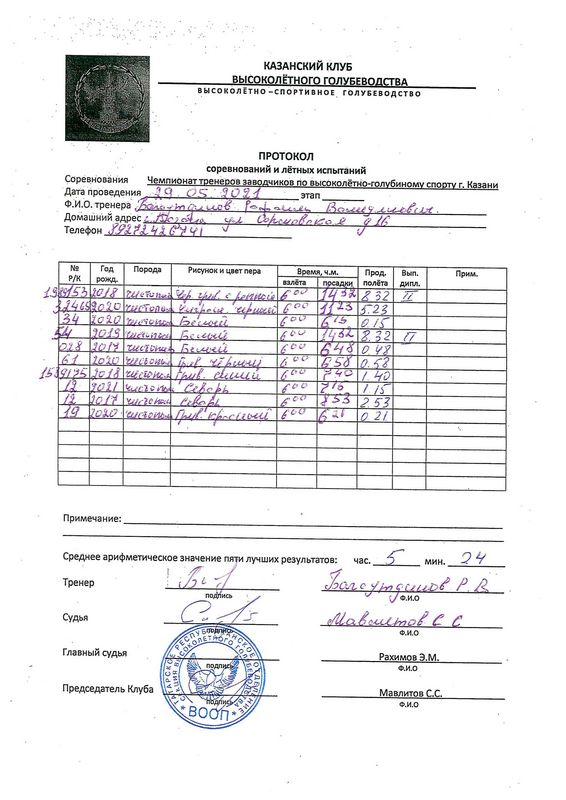 КАЗАНСКИЙ КЛУБ
ВЫСОКОЛЁТНОГО ГОЛУБЕВОДСТВА
ВЫСОКОЛЁТНО–СПОРТИВНОЕ ГОЛУБЕВОДСТВО
ПРОТОКОЛ
соревнований и лётных испытаний
Соревнования Чемпионат тренеров заводчиков по высоколётно-голубиному спорту г. Казани
Дата проведения 29.05.2021 этап
Ф.И.О. тренера
Домашний адрес ул
Телефон 89272426741
№ Р/К Год рожд. Порода Рисунок и цвет пера Время, ч.м. Прод. полёта Вып. дипл. Прим.
взлёта посадки
153 2018 6 00 14 32 8.32 II
2020 6 00 11 23 5.23
34 2020 Белый 6 00 6 15 0.15
54 2019 Белый 6 00 14 32 8.32 II
028 2017 Белый 6 00 6 48 0.48
61 2020 6 00 6 58 0.58
2018 Грив. синий 6 00 7 40 1.40
12 2021 6 00 7 15 1.15
12 2017 6 00 8 53 2.53
19 2020 Грив. красный 6 00 6 21 0.21
Примечание:
Среднее арифметическое значение пяти лучших результатов: час. 5 мин. 24
Тренер Р. В.
подпись Ф.И.О
Судья С С
подпись Ф.И.О
Главный судья Рахимов Э.М.
подпись Ф.И.О
Председатель Клуба Мавлитов С.С.
подпись Ф.И.О
ТАТАРСКОЕ РЕСПУБЛИКАНСКОЕ ОТДЕЛЕНИЕ
СЕКЦИЯ ВЫСОКОЛЕТНОГО ГОЛУБЕВОДСТВА
ВООП